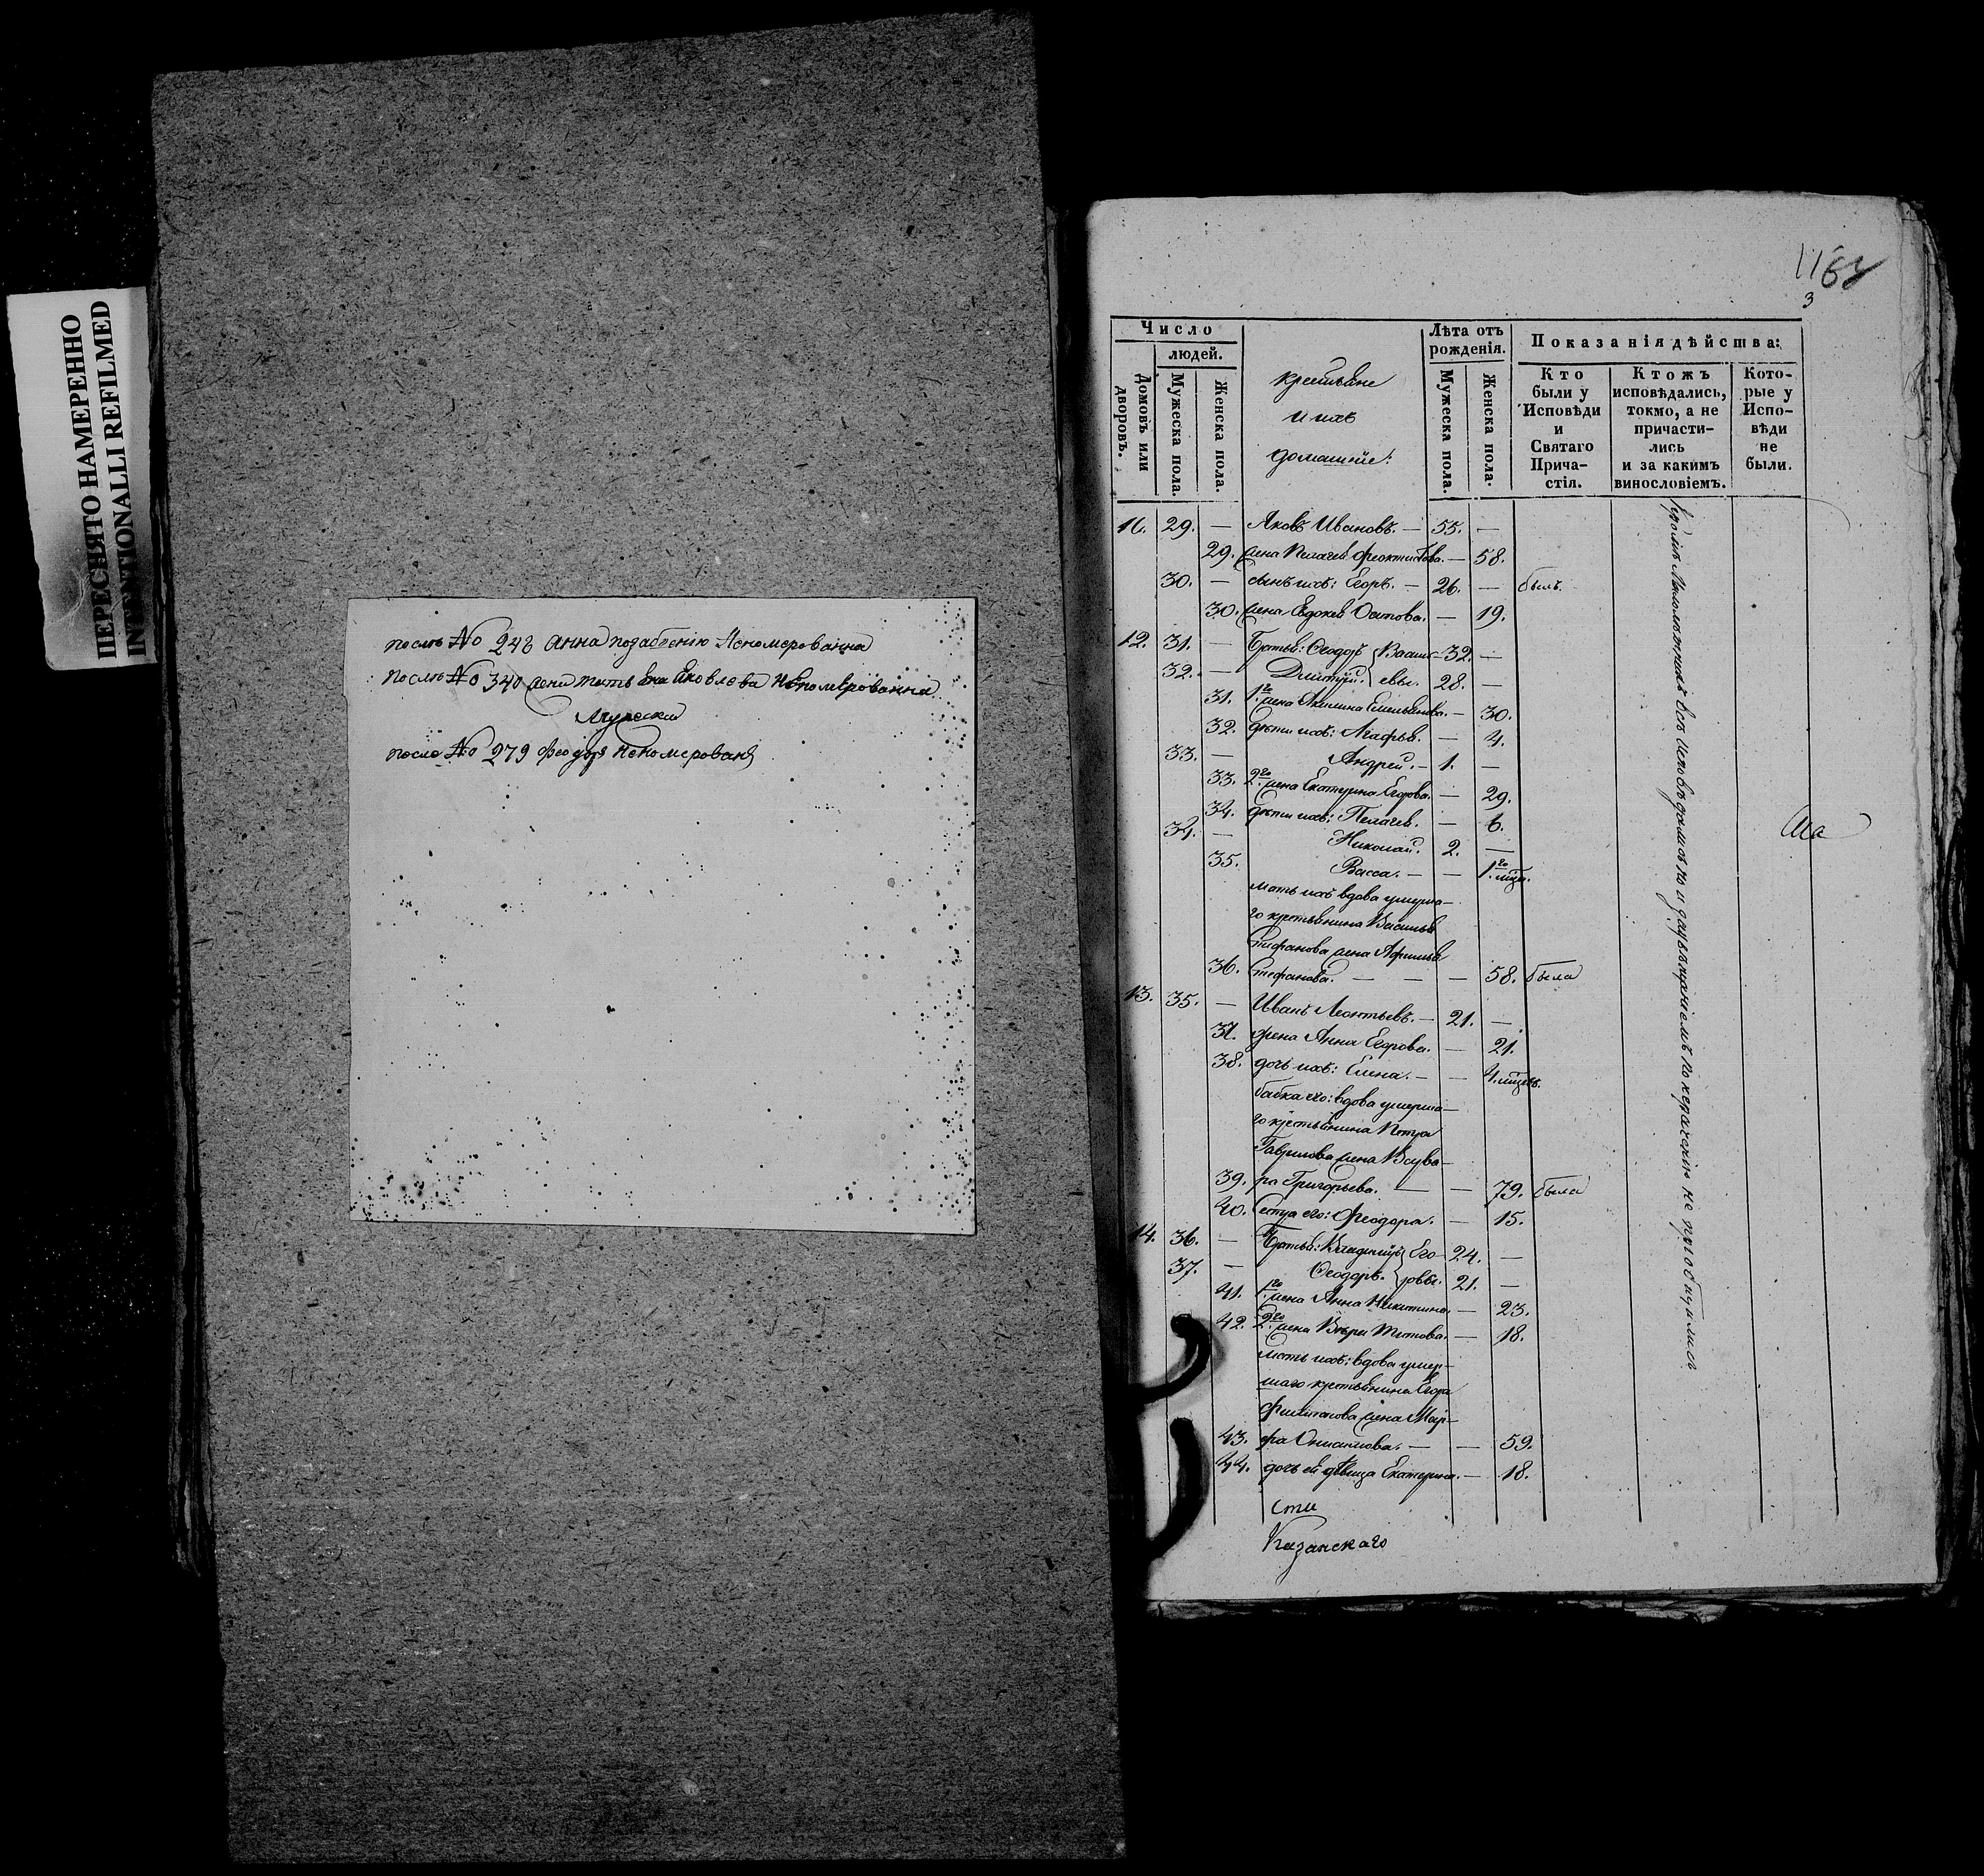 ПЕРЕСНЯТО НАМЕРЕННО
INTENTIONALLI REFILMED
послѣ No 248 Анна по забвенію Неномерованна
послѣ No 340 Яковлева Неномерованна
Мужеска
после No 279 Феодоръ Неномерованъ
3
Число
людей.
Домовъ или дворовъ.
Мужеска пола.
Женска пола.
крестьяне
и ихъ
домашніе:
Лѣта отъ рожденія.
Мужеска пола.
Женска пола.
Показанія дѣйства:
Кто были у Исповѣди и Святаго Прича-стія.
Ктожъ исповѣдались, токмо, а не причасти-лись и за какимъ винословіемъ.
Кото-рые у Испо-вѣди не были.
11. 29. — Яковъ Ивановъ. — 55. —
29. жена Пелагея Феоктистова. — 58.
30. — сынъ ихъ: Егоръ. — 26. — былъ.
30. жена Евдокея Осипова. — 19.
12. 31. — Братья: Ѳеодоръ Василь- 32. —
32. — Дмитрій. евы. 28. —
31. 1го жена Акилина Емельянова. — 30.
32. дѣти ихъ: Агафья. — 4.
33. — Андрей. — 1. —
33. 2го жена Екатерина Егорова. — 29.
34. дѣти ихъ: Пелагея. — 6.
34. — Николай. 2. —
35. Васса. — — 1го мѣца.
мать ихъ вдова умерша-
го крестьянина Василья
Стефанова жена Афимья
36. Стефанова. — — — 58. была
13. 35. — Иванъ Леонтьевъ. — 21. —
37. жена Анна Егорова. — 21.
38. дочь ихъ: Елена. — — 4. мѣцевъ.
бабка его: вдова умерша-
го крестьянина Петра
Гаврилова жена Варва-
39. ра Григорьева. — — 79. была
40. Сестра его: Феодора. — 15.
14. 36. — Братья: Владимиръ Его- 24. —
37. — Ѳеодоръ. ровы. 21. —
41. 1го жена Анна Никитина. — 23.
42. 2го жена Вѣра Титова. — 18.
мать ихъ: вдова умер-
шаго крестьянина Егора
жена Мар-
43. фа — — 59.
44. дочь ея дѣвица Екатерина. — 18.
сти
Казанскаго
Кромѣ Малолѣтнихъ всѣ исповѣдованы и не пріобщились